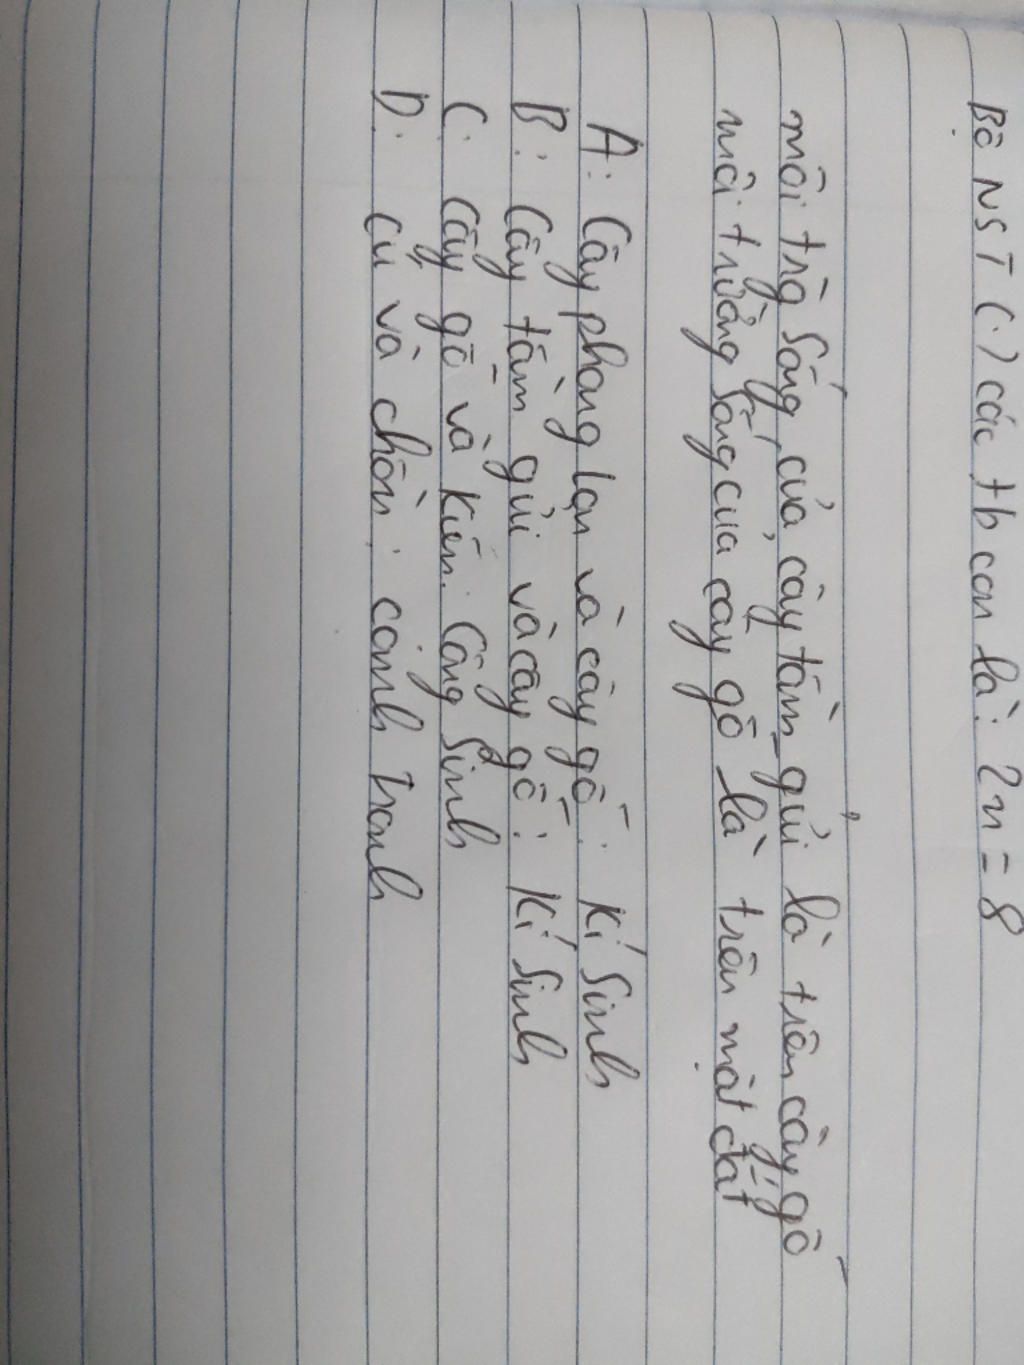 Bộ NST (.) các tb con là: 2n = 8
môi trg sống của cây tầm gửi là trên cây gỗ
môi trường sống của cây gỗ là trên mặt đất
A: Cây phong lan và cây gỗ: kí sinh
B: Cây tầm gửi và cây gỗ: kí sinh
C: cây gỗ và kiến: cộng sinh
D: cú và chồn: cạnh tranh